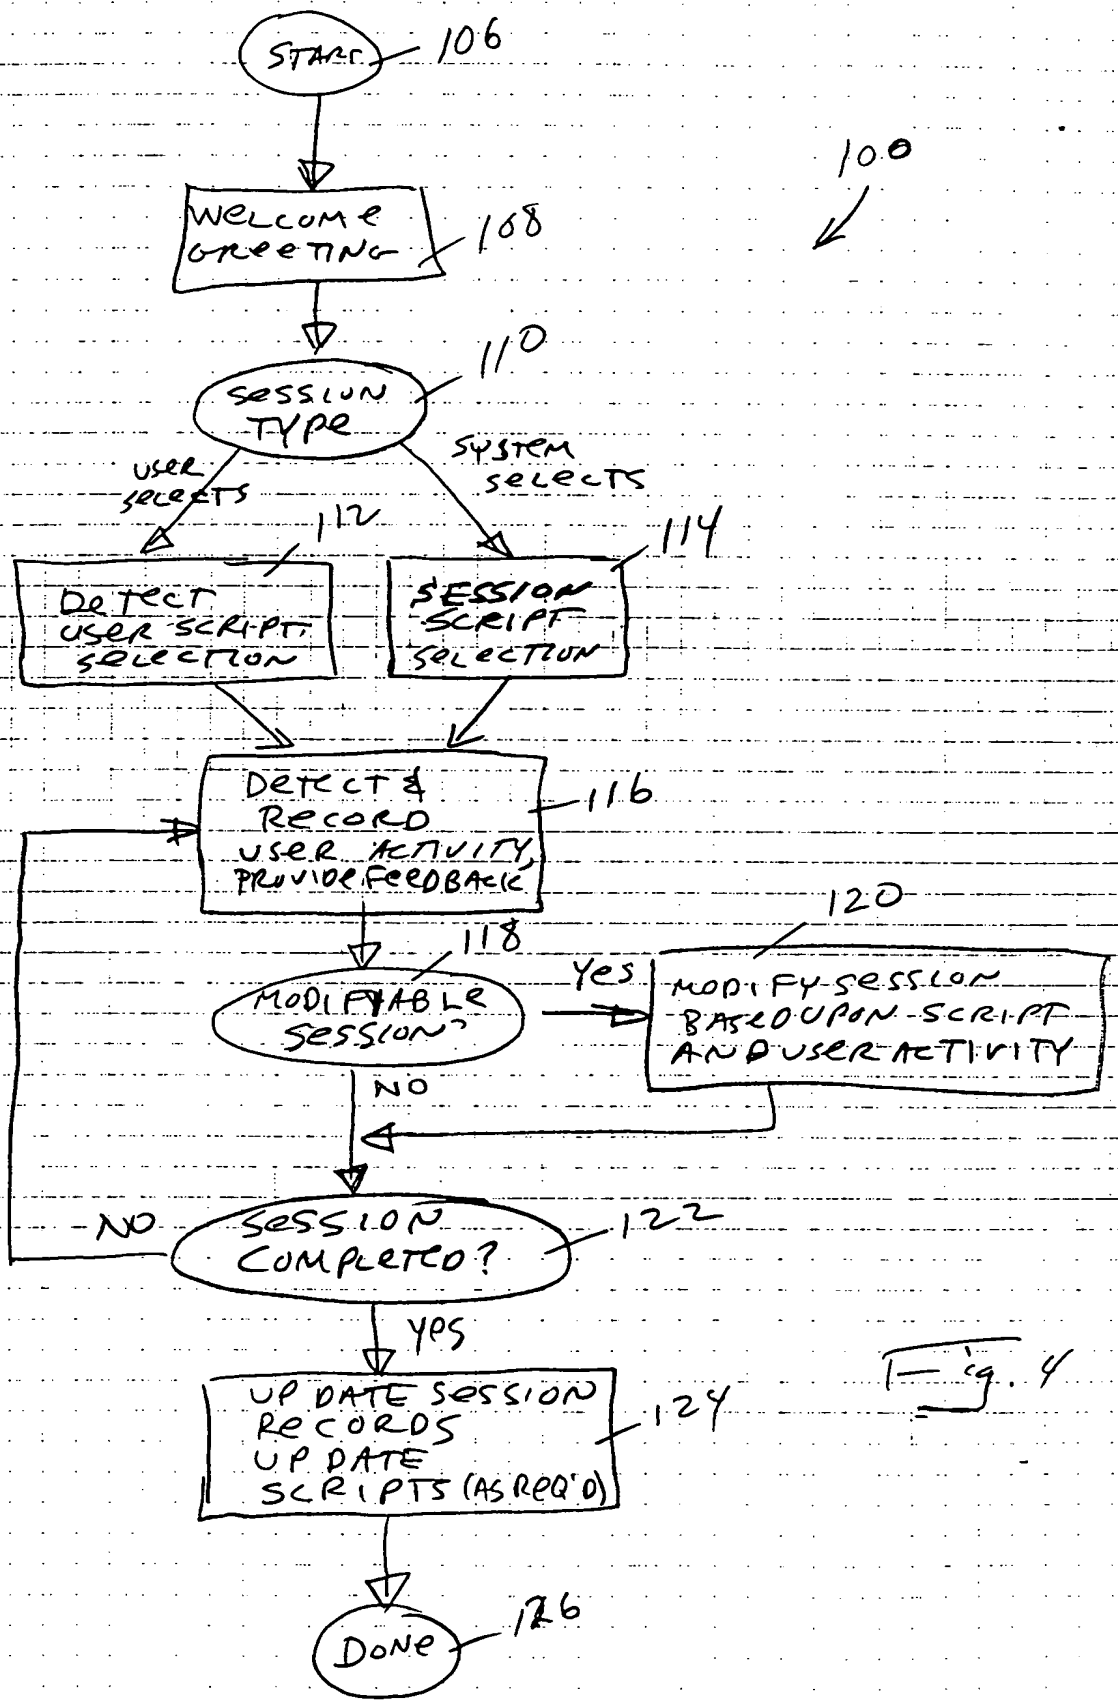 START
106
100
WELCOME
GREETING
108
110
SESSION
TYPE
USER
SELECTS
SYSTEM
SELECTS
112
114
DETECT
USER SCRIPT
SELECTION
SESSION
SCRIPT
SELECTION
DETECT &
RECORD
USER ACTIVITY,
PROVIDE FEEDBACK
116
118
120
MODIFYABLE
SESSION?
Yes
MODIFY SESSION
BASED UPON SCRIPT
AND USER ACTIVITY
NO
NO
SESSION
COMPLETED?
122
Yes
UPDATE SESSION
RECORDS
UPDATE
SCRIPTS (AS REQ'D)
124
Fig. 4
DONE
126